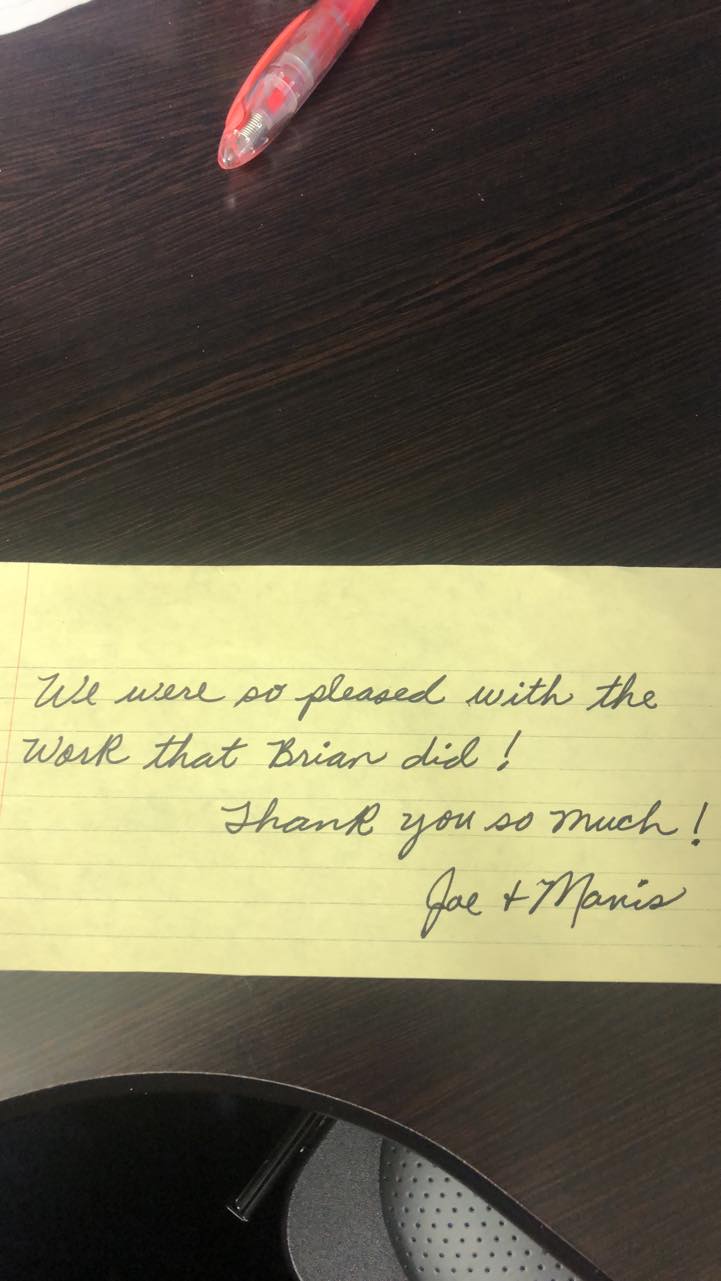 We were so pleased with the
Work that Brian did!
Thank you so much!
Joe + Mavis